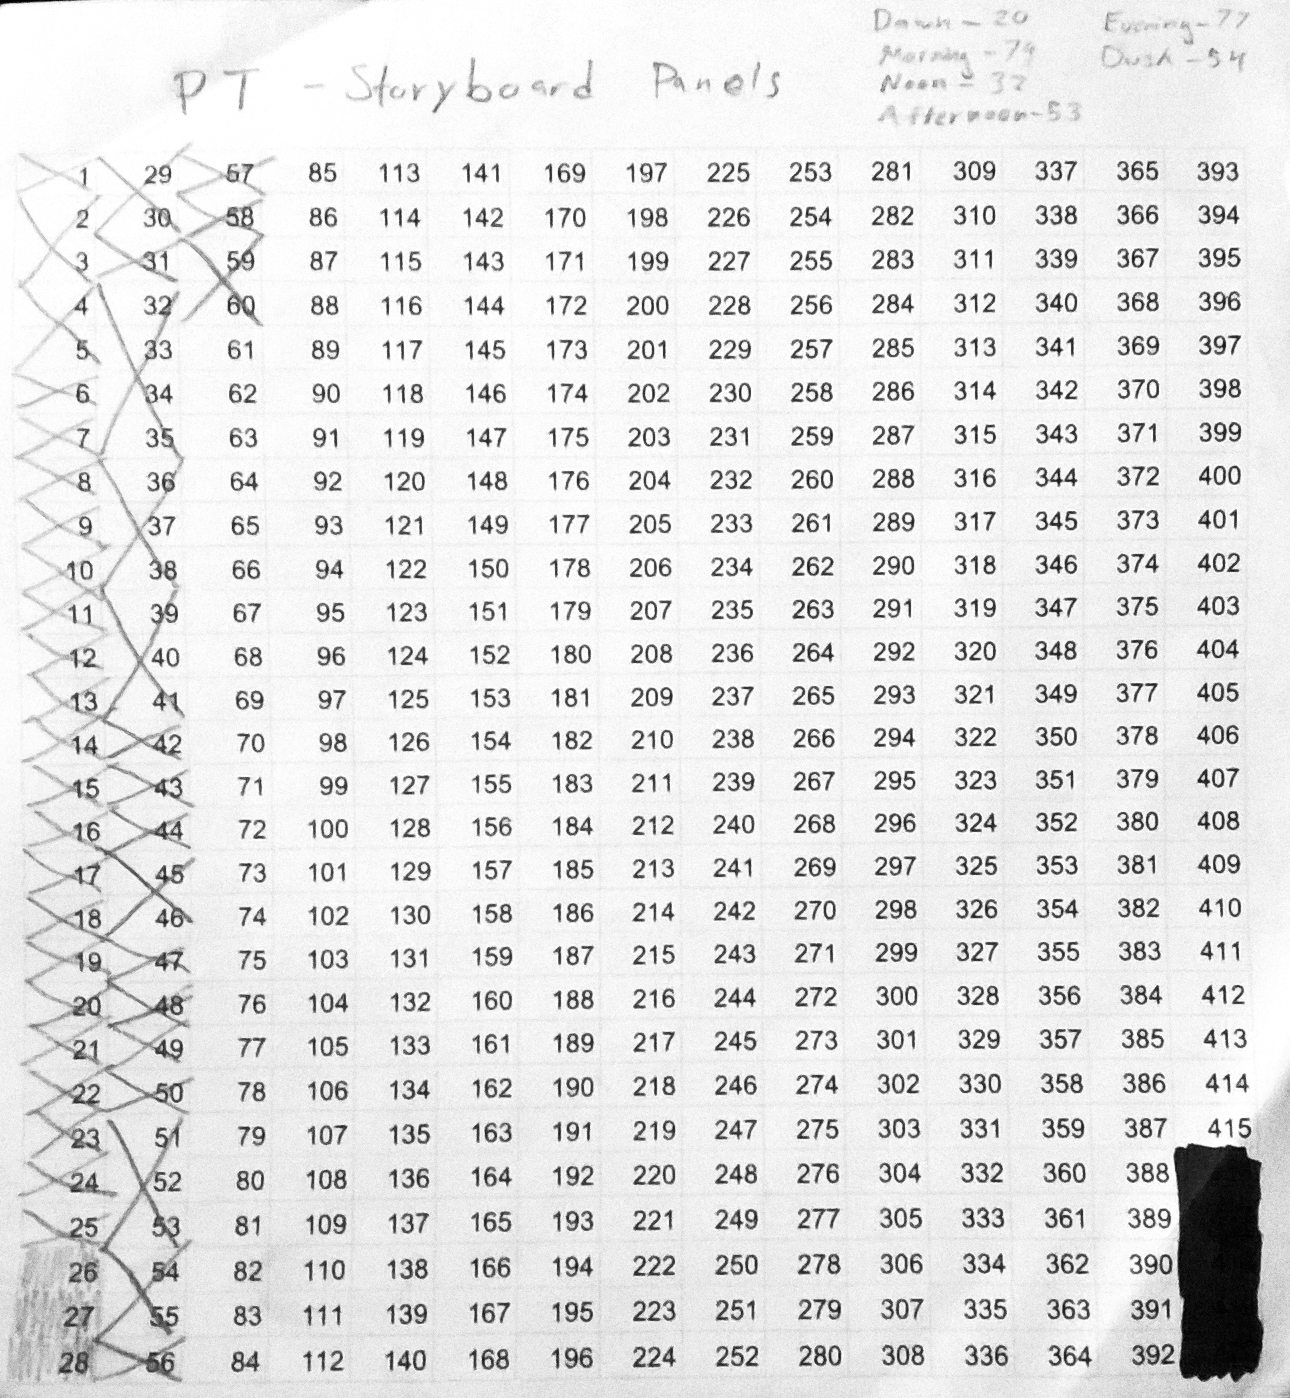 Dawn - 20 Evening - 77
Morning - 79 Dusk - 54
PT - Storyboard Panels
Noon - 32
Afternoon - 53
1 29 57 85 113 141 169 197 225 253 281 309 337 365 393
2 30 58 86 114 142 170 198 226 254 282 310 338 366 394
3 31 59 87 115 143 171 199 227 255 283 311 339 367 395
4 32 60 88 116 144 172 200 228 256 284 312 340 368 396
5 33 61 89 117 145 173 201 229 257 285 313 341 369 397
6 34 62 90 118 146 174 202 230 258 286 314 342 370 398
7 35 63 91 119 147 175 203 231 259 287 315 343 371 399
8 36 64 92 120 148 176 204 232 260 288 316 344 372 400
9 37 65 93 121 149 177 205 233 261 289 317 345 373 401
10 38 66 94 122 150 178 206 234 262 290 318 346 374 402
11 39 67 95 123 151 179 207 235 263 291 319 347 375 403
12 40 68 96 124 152 180 208 236 264 292 320 348 376 404
13 41 69 97 125 153 181 209 237 265 293 321 349 377 405
14 42 70 98 126 154 182 210 238 266 294 322 350 378 406
15 43 71 99 127 155 183 211 239 267 295 323 351 379 407
16 44 72 100 128 156 184 212 240 268 296 324 352 380 408
17 45 73 101 129 157 185 213 241 269 297 325 353 381 409
18 46 74 102 130 158 186 214 242 270 298 326 354 382 410
19 47 75 103 131 159 187 215 243 271 299 327 355 383 411
20 48 76 104 132 160 188 216 244 272 300 328 356 384 412
21 49 77 105 133 161 189 217 245 273 301 329 357 385 413
22 50 78 106 134 162 190 218 246 274 302 330 358 386 414
23 51 79 107 135 163 191 219 247 275 303 331 359 387 415
24 52 80 108 136 164 192 220 248 276 304 332 360 388
25 53 81 109 137 165 193 221 249 277 305 333 361 389
26 54 82 110 138 166 194 222 250 278 306 334 362 390
27 55 83 111 139 167 195 223 251 279 307 335 363 391
28 56 84 112 140 168 196 224 252 280 308 336 364 392